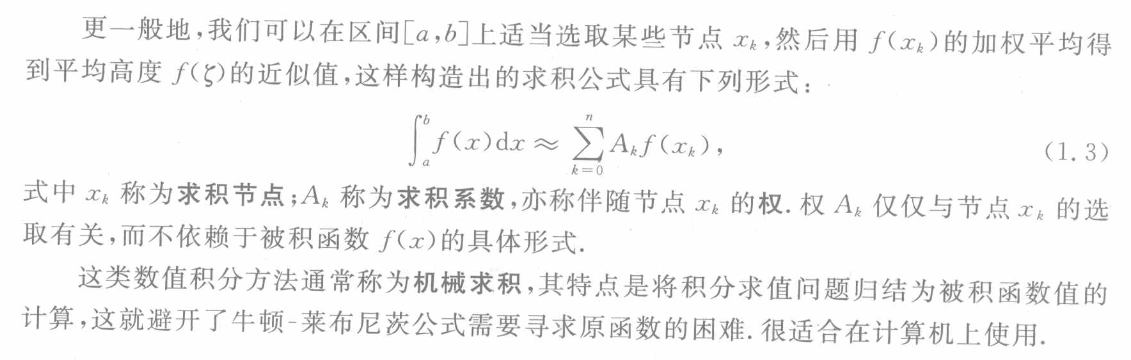 更一般地,我们可以在区间[a,b]上适当选取某些节点 xₖ,然后用 f(xₖ)的加权平均得
到平均高度 f(ζ)的近似值,这样构造出的求积公式具有下列形式:
∫ₐᵇ f(x)dx ≈ ∑ₖ₌₀ⁿ Aₖf(xₖ), (1.3)
式中 xₖ 称为求积节点;Aₖ 称为求积系数,亦称伴随节点 xₖ 的权. 权 Aₖ 仅仅与节点 xₖ 的选
取有关,而不依赖于被积函数 f(x)的具体形式.
这类数值积分方法通常称为机械求积,其特点是将积分求值问题归结为被积函数值的
计算,这就避开了牛顿-莱布尼茨公式需要寻求原函数的困难. 很适合在计算机上使用.